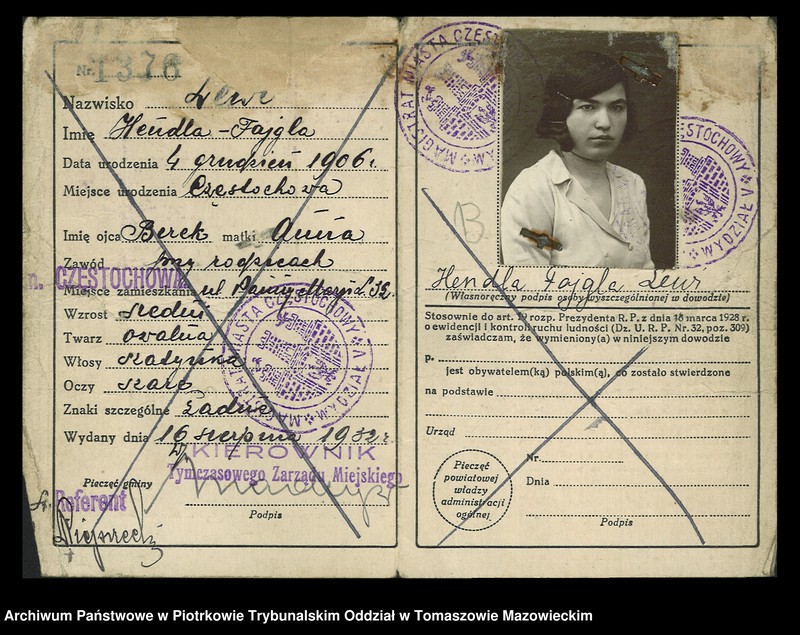 Nr. 1376
Nazwisko Lewr
Imię Hendla-Fajgla
Data urodzenia 4 grudzień 1906 r.
Miejsce urodzenia Częstochowa
Imię ojca Berek matki Anna
Zawód przy rodzicach
m. CZĘSTOCHOWA
Miejsce zamieszkania ul. Panny Marji L. 32.
Wzrost średni
Twarz owalna
Włosy
Oczy
Znaki szczególne żadne
Wydany dnia 16 sierpnia 1932 r.
KIEROWNIK
Tymczasowego Zarządu Miejskiego
Pieczęć gminy
Referent
Podpis
MAGISTRAT MIASTA CZĘSTOCHOWY
WYDZIAŁ V
B.
Hendla Fajgla Lewr
(Własnoręczny podpis osoby wyszczególnionej w dowodzie)
Stosownie do art. 19 rozp. Prezydenta R. P. z dnia 16 marca 1928 r.
o ewidencji i kontroli ruchu ludności (Dz. U. R. P. Nr. 32, poz. 309)
zaświadczam, że wymieniony(a) w niniejszym dowodzie
p.
jest obywatelem(ką) polskim(ą), co zostało stwierdzone
na podstawie
Urząd
Nr.
Dnia
Pieczęć
powiatowej
władzy
administracji
ogólnej
Podpis
Archiwum Państwowe w Piotrkowie Trybunalskim Oddział w Tomaszowie Mazowieckim